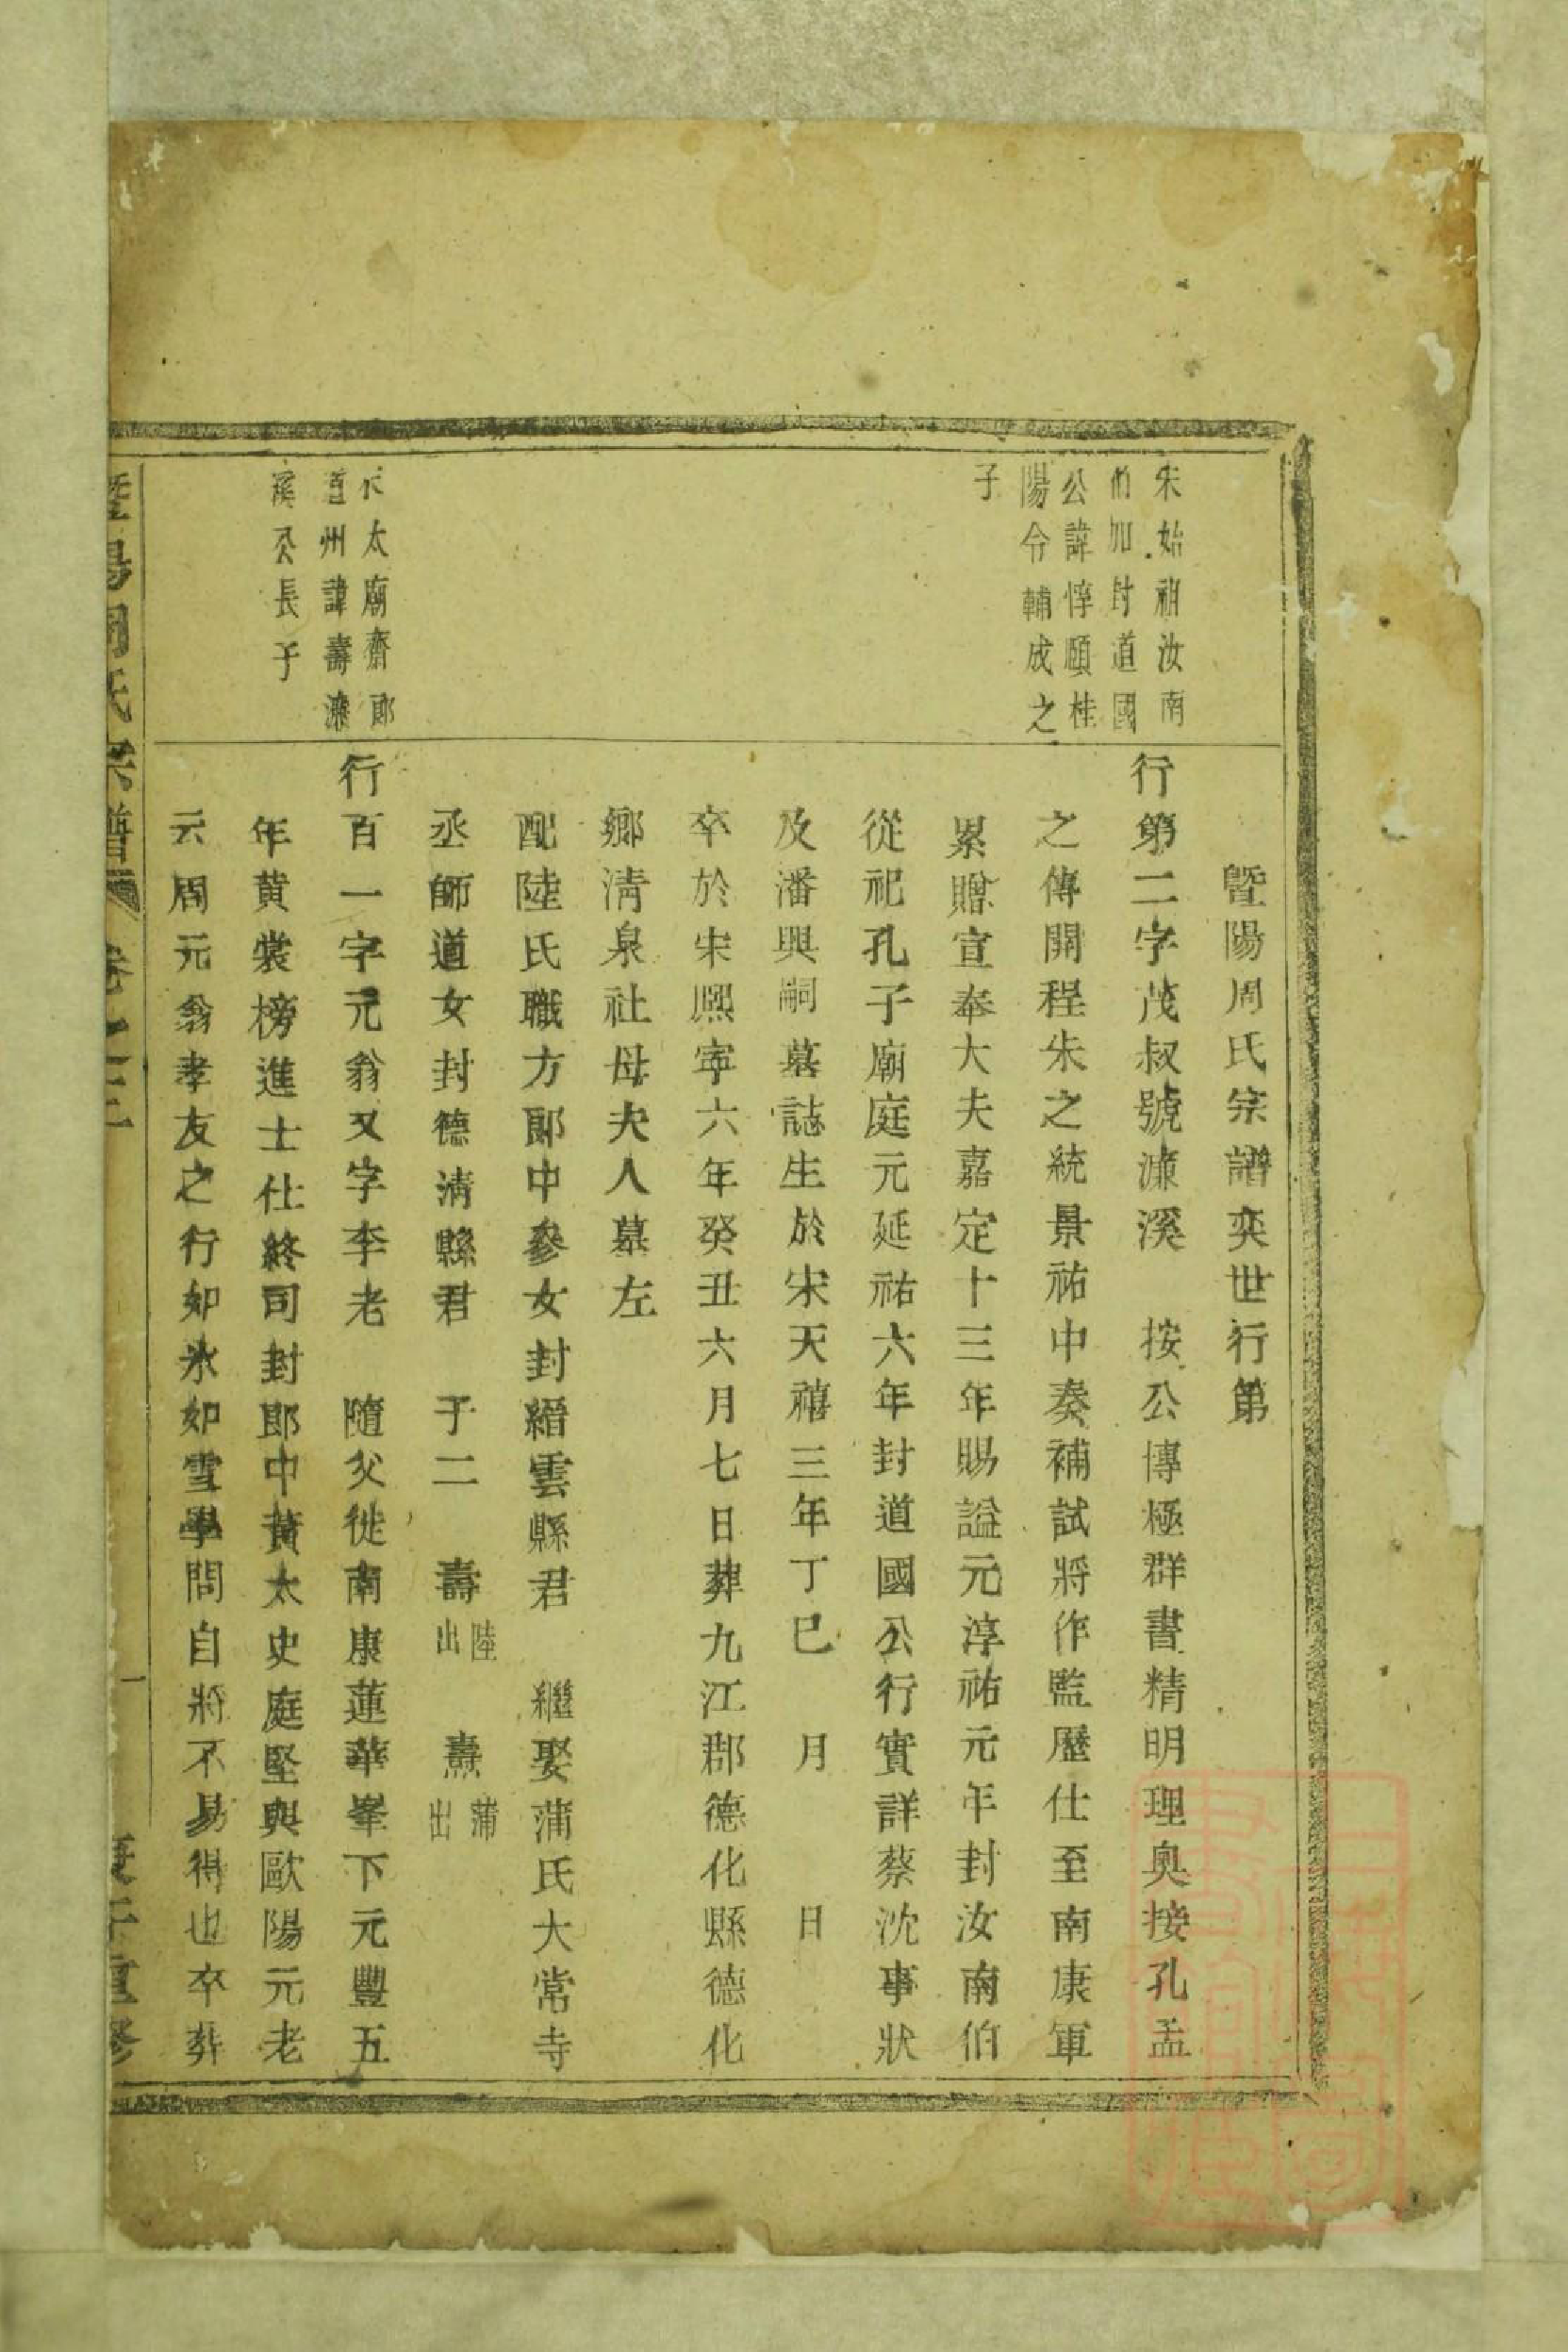 暨陽周氏宗譜奕世行第
朱始祖汝南
伯加封道國
公諱惇頤桂
陽令輔成之
子
行第二字茂叔號濂溪　按公博極群書精明理奥接孔孟
之傳開程朱之統景祐中奏補試將作監歷仕至南康軍
累贈宣奉大夫嘉定十三年賜謚元淳祐元年封汝南伯
從祀孔子廟庭元延祐六年封道國公行實詳蔡沈事狀
及潘興嗣墓誌生於宋天禧三年丁巳　月　　日
卒於宋熙寧六年癸丑六月七日葬九江郡德化縣德化
鄉清泉社母夫人墓左
配陸氏職方郎中參女封縉雲縣君　繼娶蒲氏大常寺
丞師道女封德清縣君　子二　壽陸出　燾蒲出
太廟齋郎
道州諱壽濂
溪公長子
行百一字元翁又字李老　隨父徙南康蓮華峯下元豐五
年黃裳榜進士仕終司封郎中黃太史庭堅與歐陽元老
云周元翁孝友之行如氷如雪學問自將不易得也卒葬
暨陽周氏宗譜　卷之二　一　庚午重修